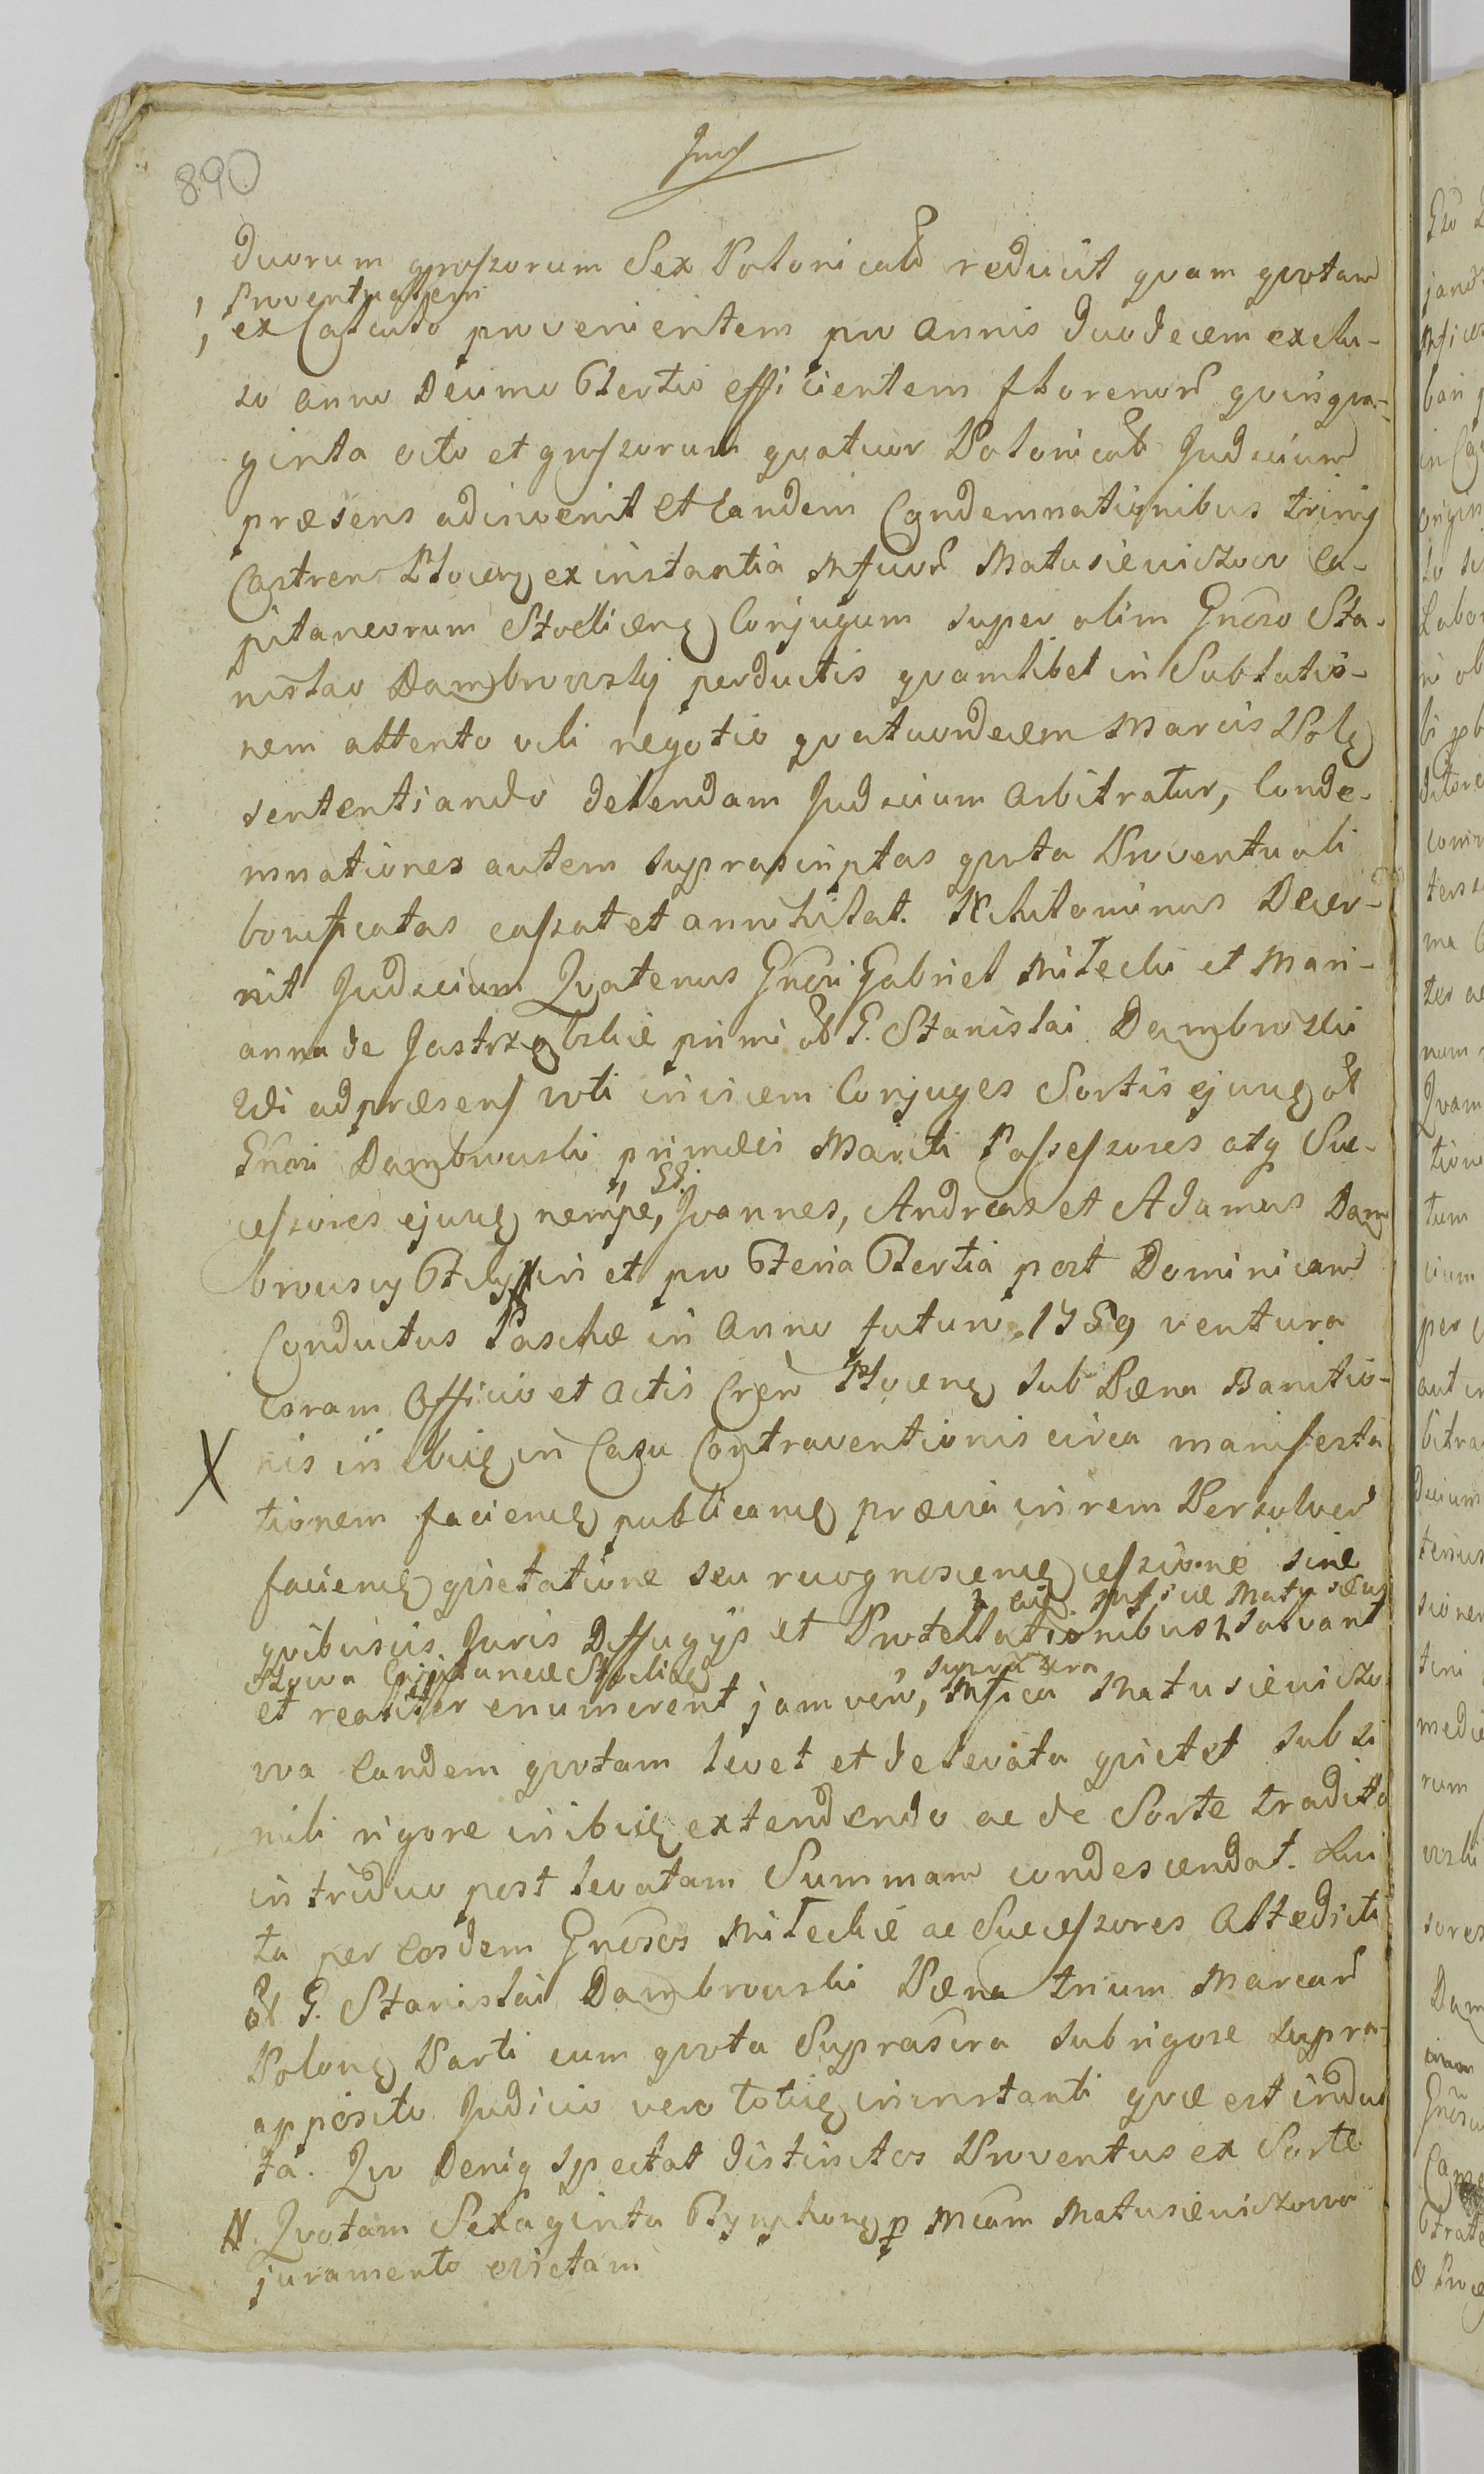 890
duorum groszorum Sex Polonical reducit quam quotam
Proventualem
ex Calculo provenientem pro annis duodecem exclu-
so anno Decimo Tertio efficientem florenor quinqua-
ginta octo et groszorum quatuor Polonical Judicium
præsens adinvenit et Eandem Condemnationibus trinis
Castren Plocen ex instantia Mfcor Matusiewiczow Ca-
pitaneorum Stoclicen Conjugum super olim Gnoso Sta-
nislao Dambrowsky perductis quamlibet in Sublatio-
nem attento vili negotio quatuordecem Marcis Pol
sententiando delendam Judicium arbitratur, Conde-
mnationes autem suprascriptas quota Proventuali
bonificatas caszat et annihilat. Nihilominus Decer-
nit Judicium Quatenus Gnosi Gabriel Milecki et Mari-
anna de Jastrzębskie primi ol G. Stanislai Dambroski
2di ad præsens voti invicem Conjuges Sortis ejusq ol
Gnosi Dambrowski primævi Mariti Posseszores atq Suc-
GG.
ceszores ejusq nempe, Joannes, Andreas et Adamus Dam
browscy in et pro Feria Tertia post Dominicam
Conductus Paschæ in Anno futuro 1759 ventura
coram Officio et Actis Cren Plocen sub Pæna Banitio-
X nis in Casu Contraventionis circa manifesta
tionem faciend publicand prævia in rem Persolven
faciend quietatione seu recognoscend ceszione sine
Mfcæ Matusiewi
quibusvis Juris Diffugijs et Protellationibus solvant
czowa Capitaneæ Stoclicen suprascra
et realiter enumerent jam vero, Mfica Matusiewiczo
wa Eandem quotam levet et de levata quietet sub si
mili rigore extendendo ac de Sorte tradita
in triduo post levatam Summam condescendat. Lui
ta per Eosdem Gnosos Mileckie ac Succeszores Attedicti
ol G. Stanislai Dambrowski Pæna trium Marcar
Polon Parti cum quota Suprascra sub rigore supra
apposito Judicio vero in instanti quæ est indul
ta. Quo Deniq spectat distinctos Proventus ex Sorte
N. Quotam Sexaginta Tymphon p Mcam Matusiewiczowa
juramento evictam